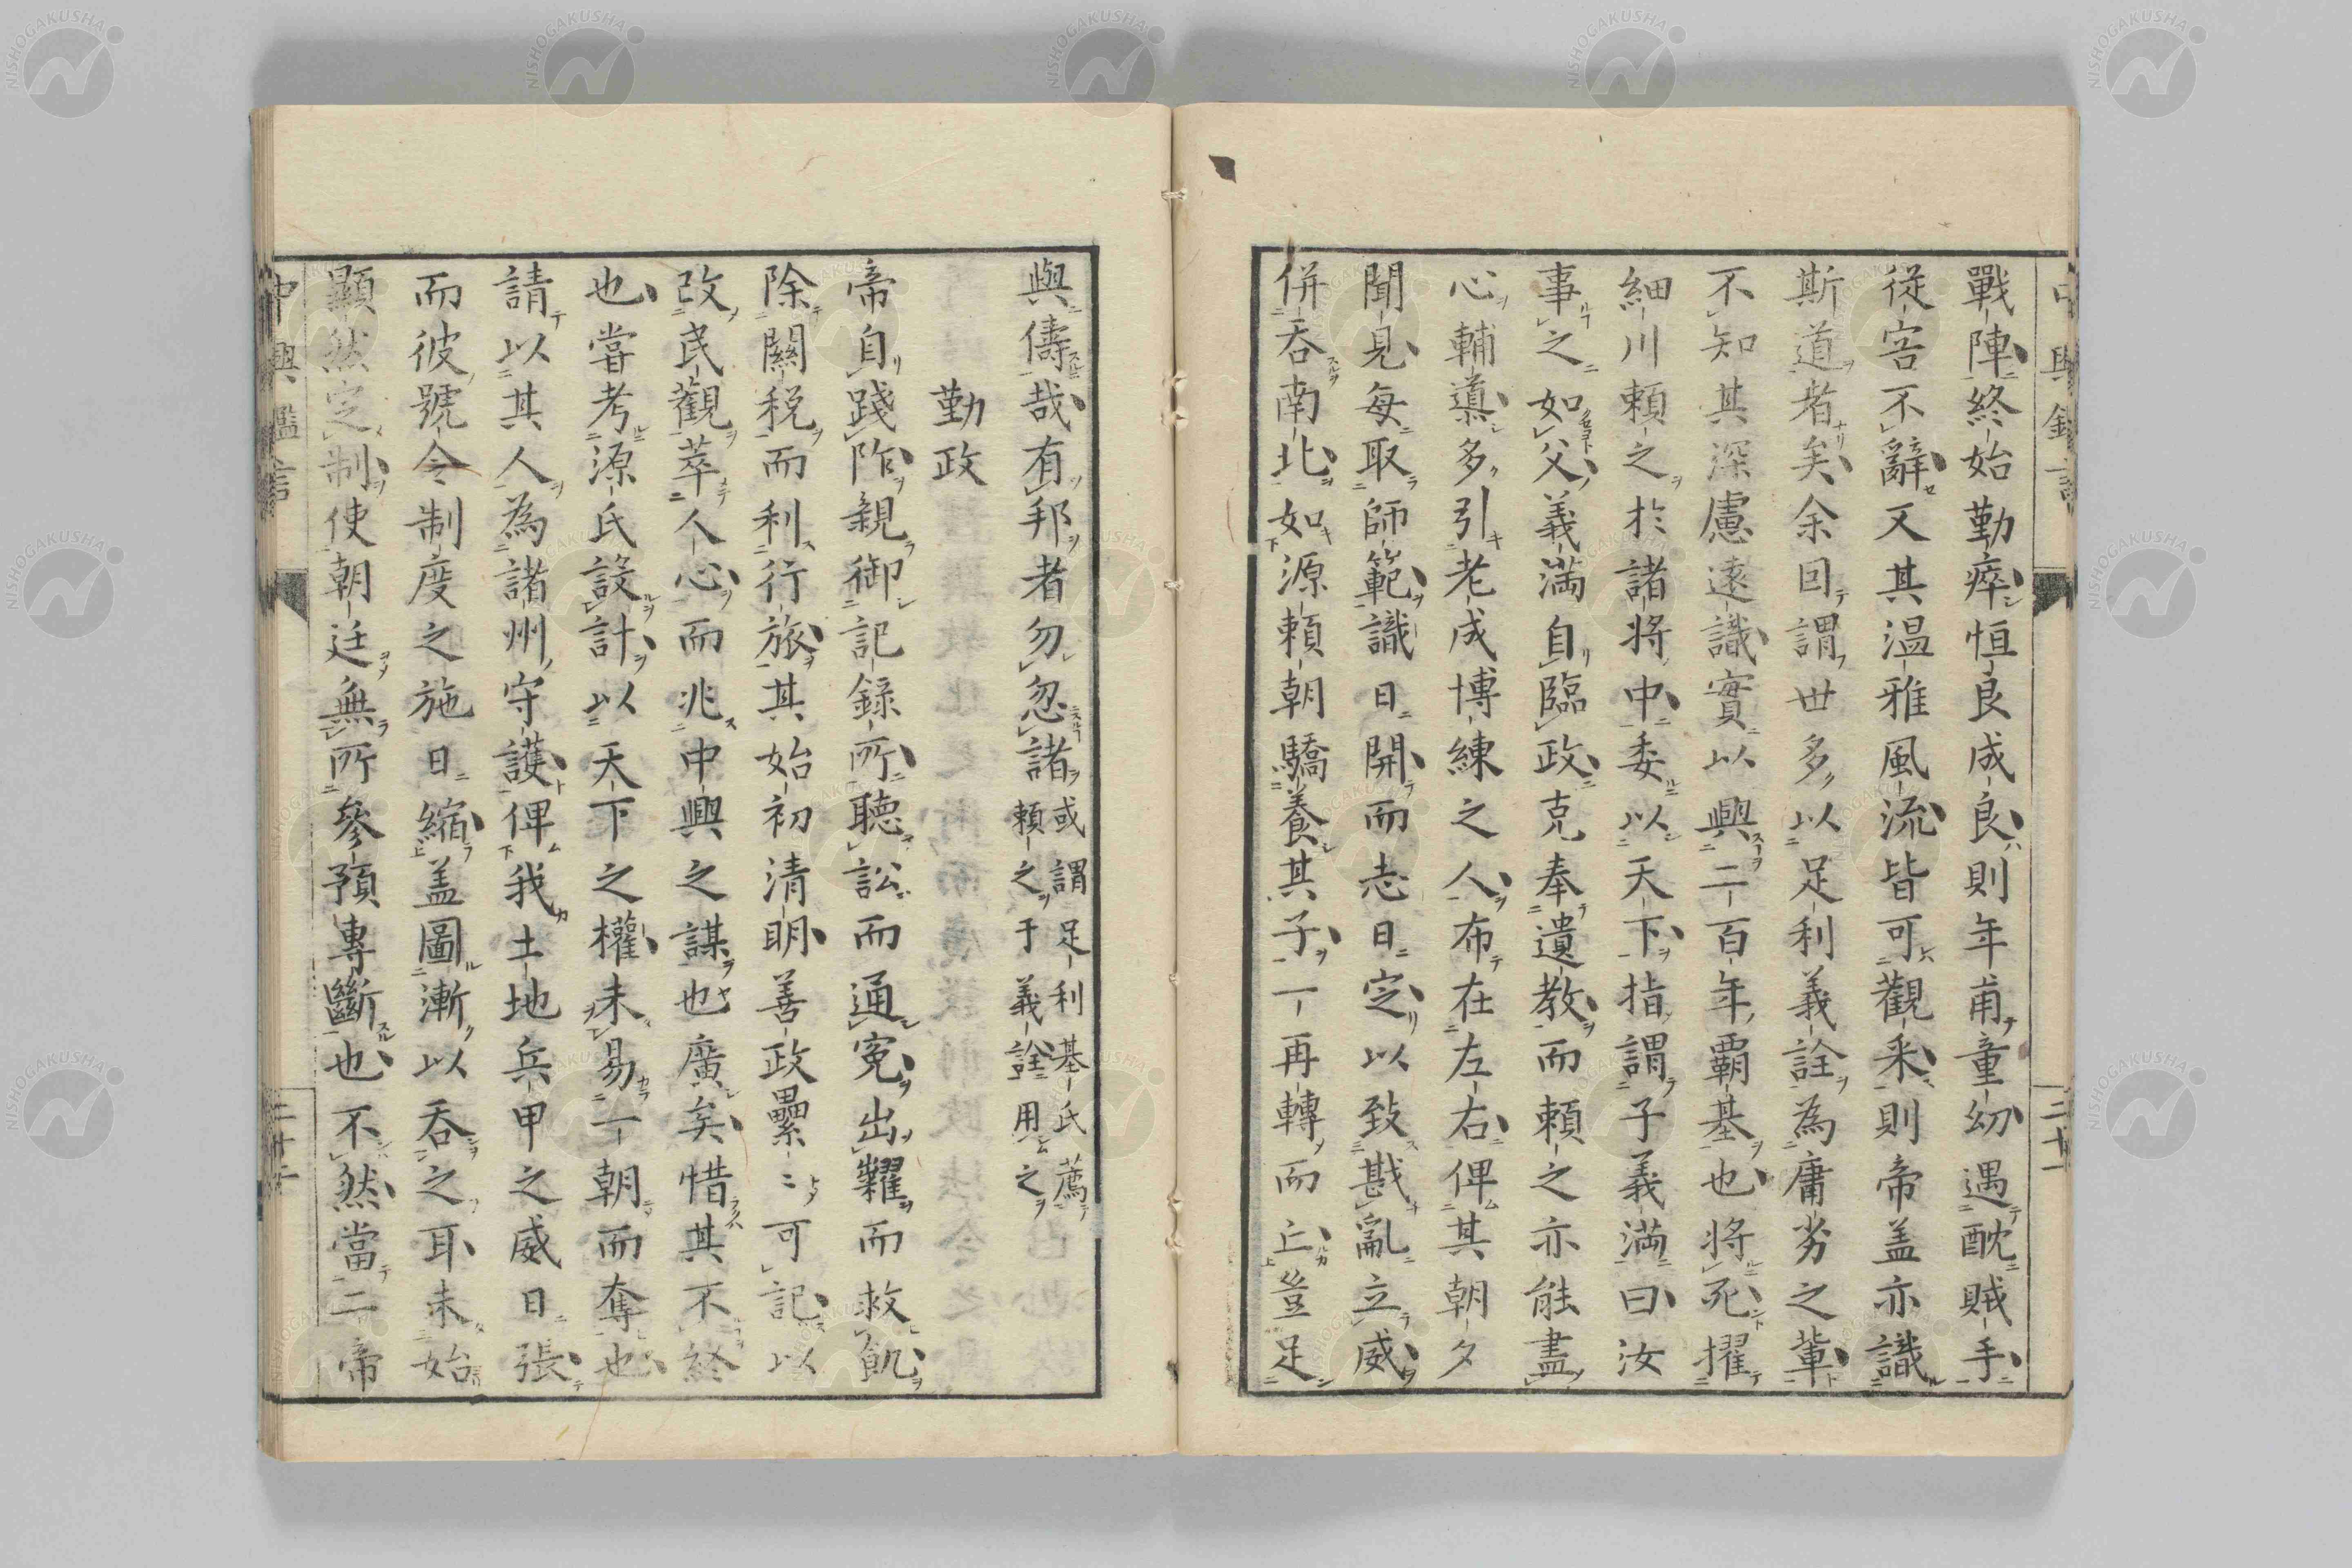 戰陣終始勤瘁恒良成良則年甫童幼遇酖賊手
從容不辭又其温雅風流皆可觀釆則帝盖亦識
斯道者矣余回謂世多以足利義詮為庸劣之輩
不知其深慮遠識實以興二百年覇基也將死擢
細川頼之於諸将中委以天下指謂子義満曰汝
事之如父義満自臨政克奉遺教而頼之亦能盡
心輔導多引老成博練之人布在左右俾其朝夕
聞見每取師範識日開而志日定以致戡亂立威
併呑南北如源頼朝驕養其子一再轉而亡豈足
與儔哉有邦者勿忽諸
或謂足利基氏薦
頼之于義詮用之
勤政
帝自踐阼親御記録所聽訟而通寃出糶而救飢
除關税而利行旅其始初清明善政纍〻可記以
改民觀萃人心而兆中興之謀也廣矣惜其不終
也嘗考源氏設計以天下之權未易一朝而奪也
請以其人為諸州守護俾我土地兵甲之威日張
而彼號令制度之施日縮盖圖漸以呑之耳未始
顯然定制使朝廷無所參預專斷也不然當二帝
中興鑑言
二十一